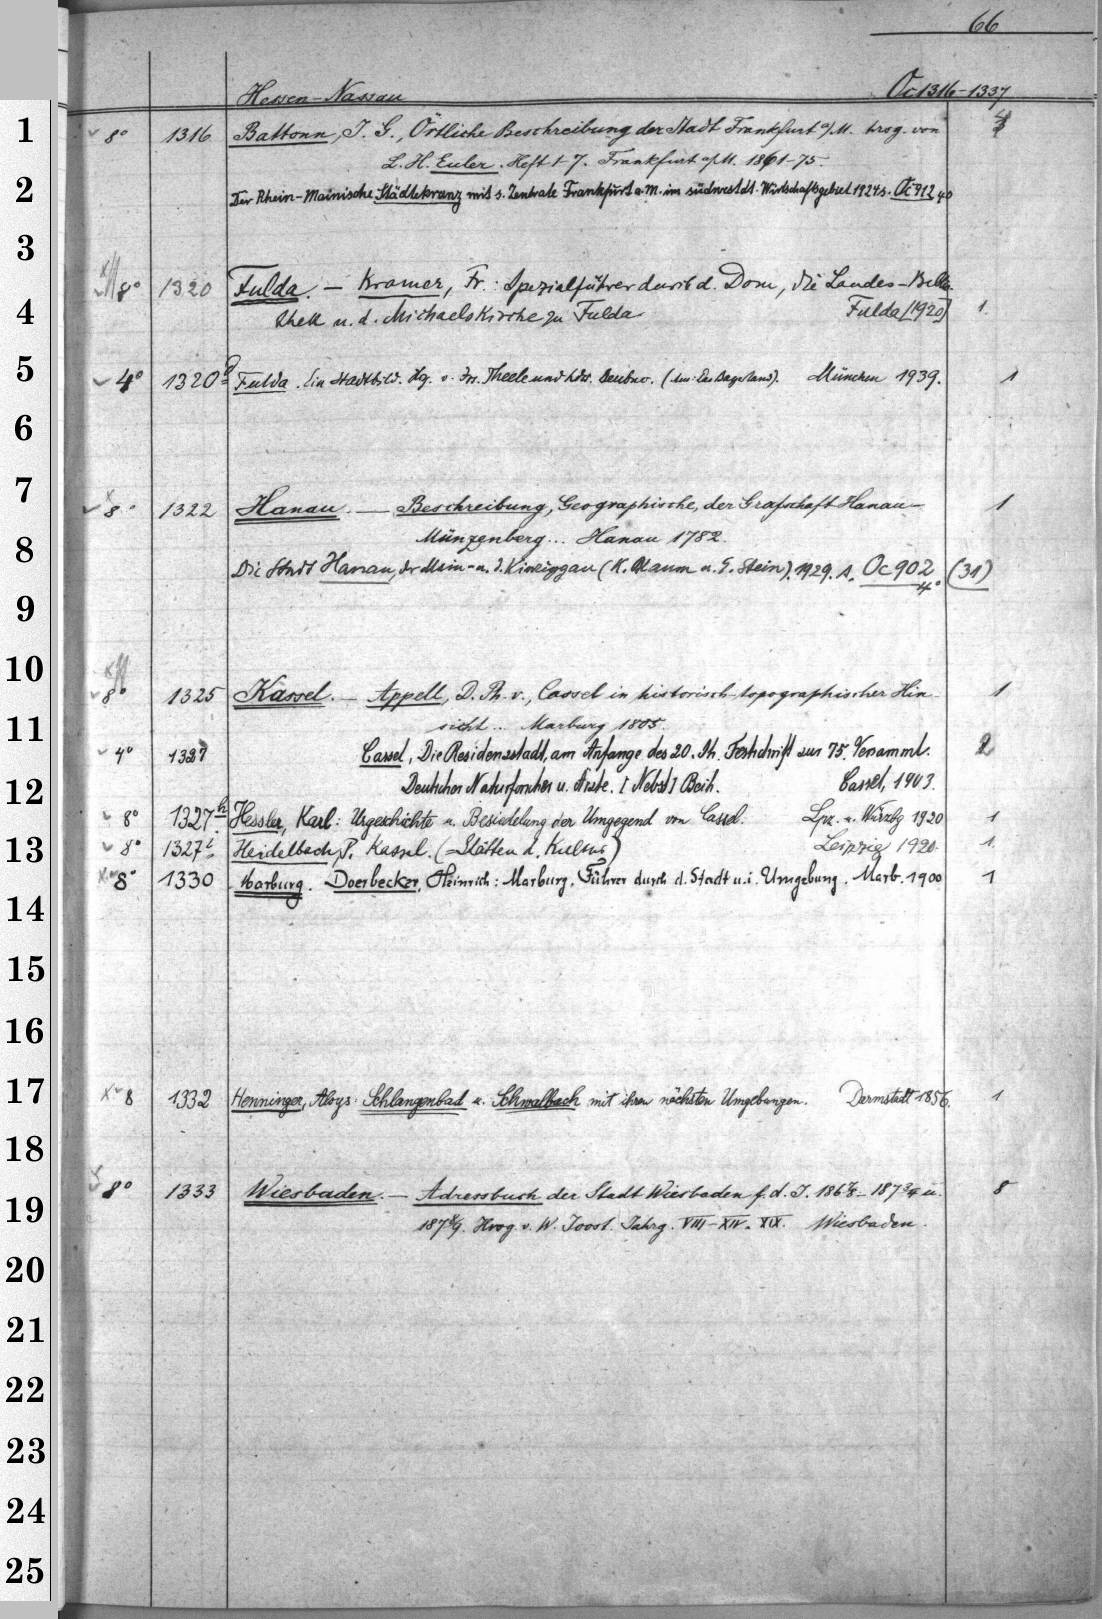 66
Hessen-Nassau Oc 1316-1337
1
8° 1316 Battonn, J. G., Örtliche Beschreibung der Stadt Frankfurt a/M. hrsg. von
L. H. Euler. Heft 1-7. Frankfurt a/M. 1861-75.
2
Der Rhein-Mainische Städtekranz mit s. Zentrale Frankfurt a. M. im südwestdt. Wirtschaftsgebiet 1924 s. Oc 912 4°
3
8° 1320 Fulda. — Kramer, Fr.: Spezialführer durch d. Dom, die Landes-Biblio-
4
thek u. d. Michaelskirche zu Fulda Fulda [1920] 1.
5
4° 1320 Fulda. Ein Stadtbild. Hg. v. Theele und Deubner. München 1939. 1
6
7
8° 1322 Hanau. — Beschreibung, Geographische, der Grafschaft Hanau- 1
8
Münzenberg... Hanau 1782.
Die Stadt Hanau, der Main- u. d. Kinziggau (K. Blaum u. E. Stein). 1929. s. Oc 902 4° (31)
9
10
8° 1325 Kassel. — Appell, D. Ph. v., Cassel in historisch-topographischer Hin- 1
11
sicht... Marburg 1805.
4° 1327 Cassel, Die Residenzstadt, am Anfange des 20. Jh. Festschrift zur 75. Versamml. 2
12
Deutscher Naturforscher u. Ärzte. [Nebst] Beih. Cassel, 1903.
8° 1327h Hessler, Karl: Urgeschichte u. Besiedelung der Umgegend von Cassel. Lpz. u. Würzbg 1920 1
13
8° 1327i Heidelbach, P. Kassel. (Stätten d. Kultur) Leipzig 1920. 1.
8° 1330 Marburg. Doerbecker, Heinrich: Marburg. Führer durch d. Stadt u. i. Umgebung. Marb. 1900 1
14
15
16
17
8 1332 Henninger, Aloys: Schlangenbad u. Schwalbach mit ihren nächsten Umgebungen. Darmstadt 1856. 1
18
8° 1333 Wiesbaden. — Adressbuch der Stadt Wiesbaden f. d. J. 1867/8-1873/4 u. 8
19
1878/9. Hrsg. v. W. Joost. Jahrg. VIII-XIV. XIX. Wiesbaden.
20
21
22
23
24
25